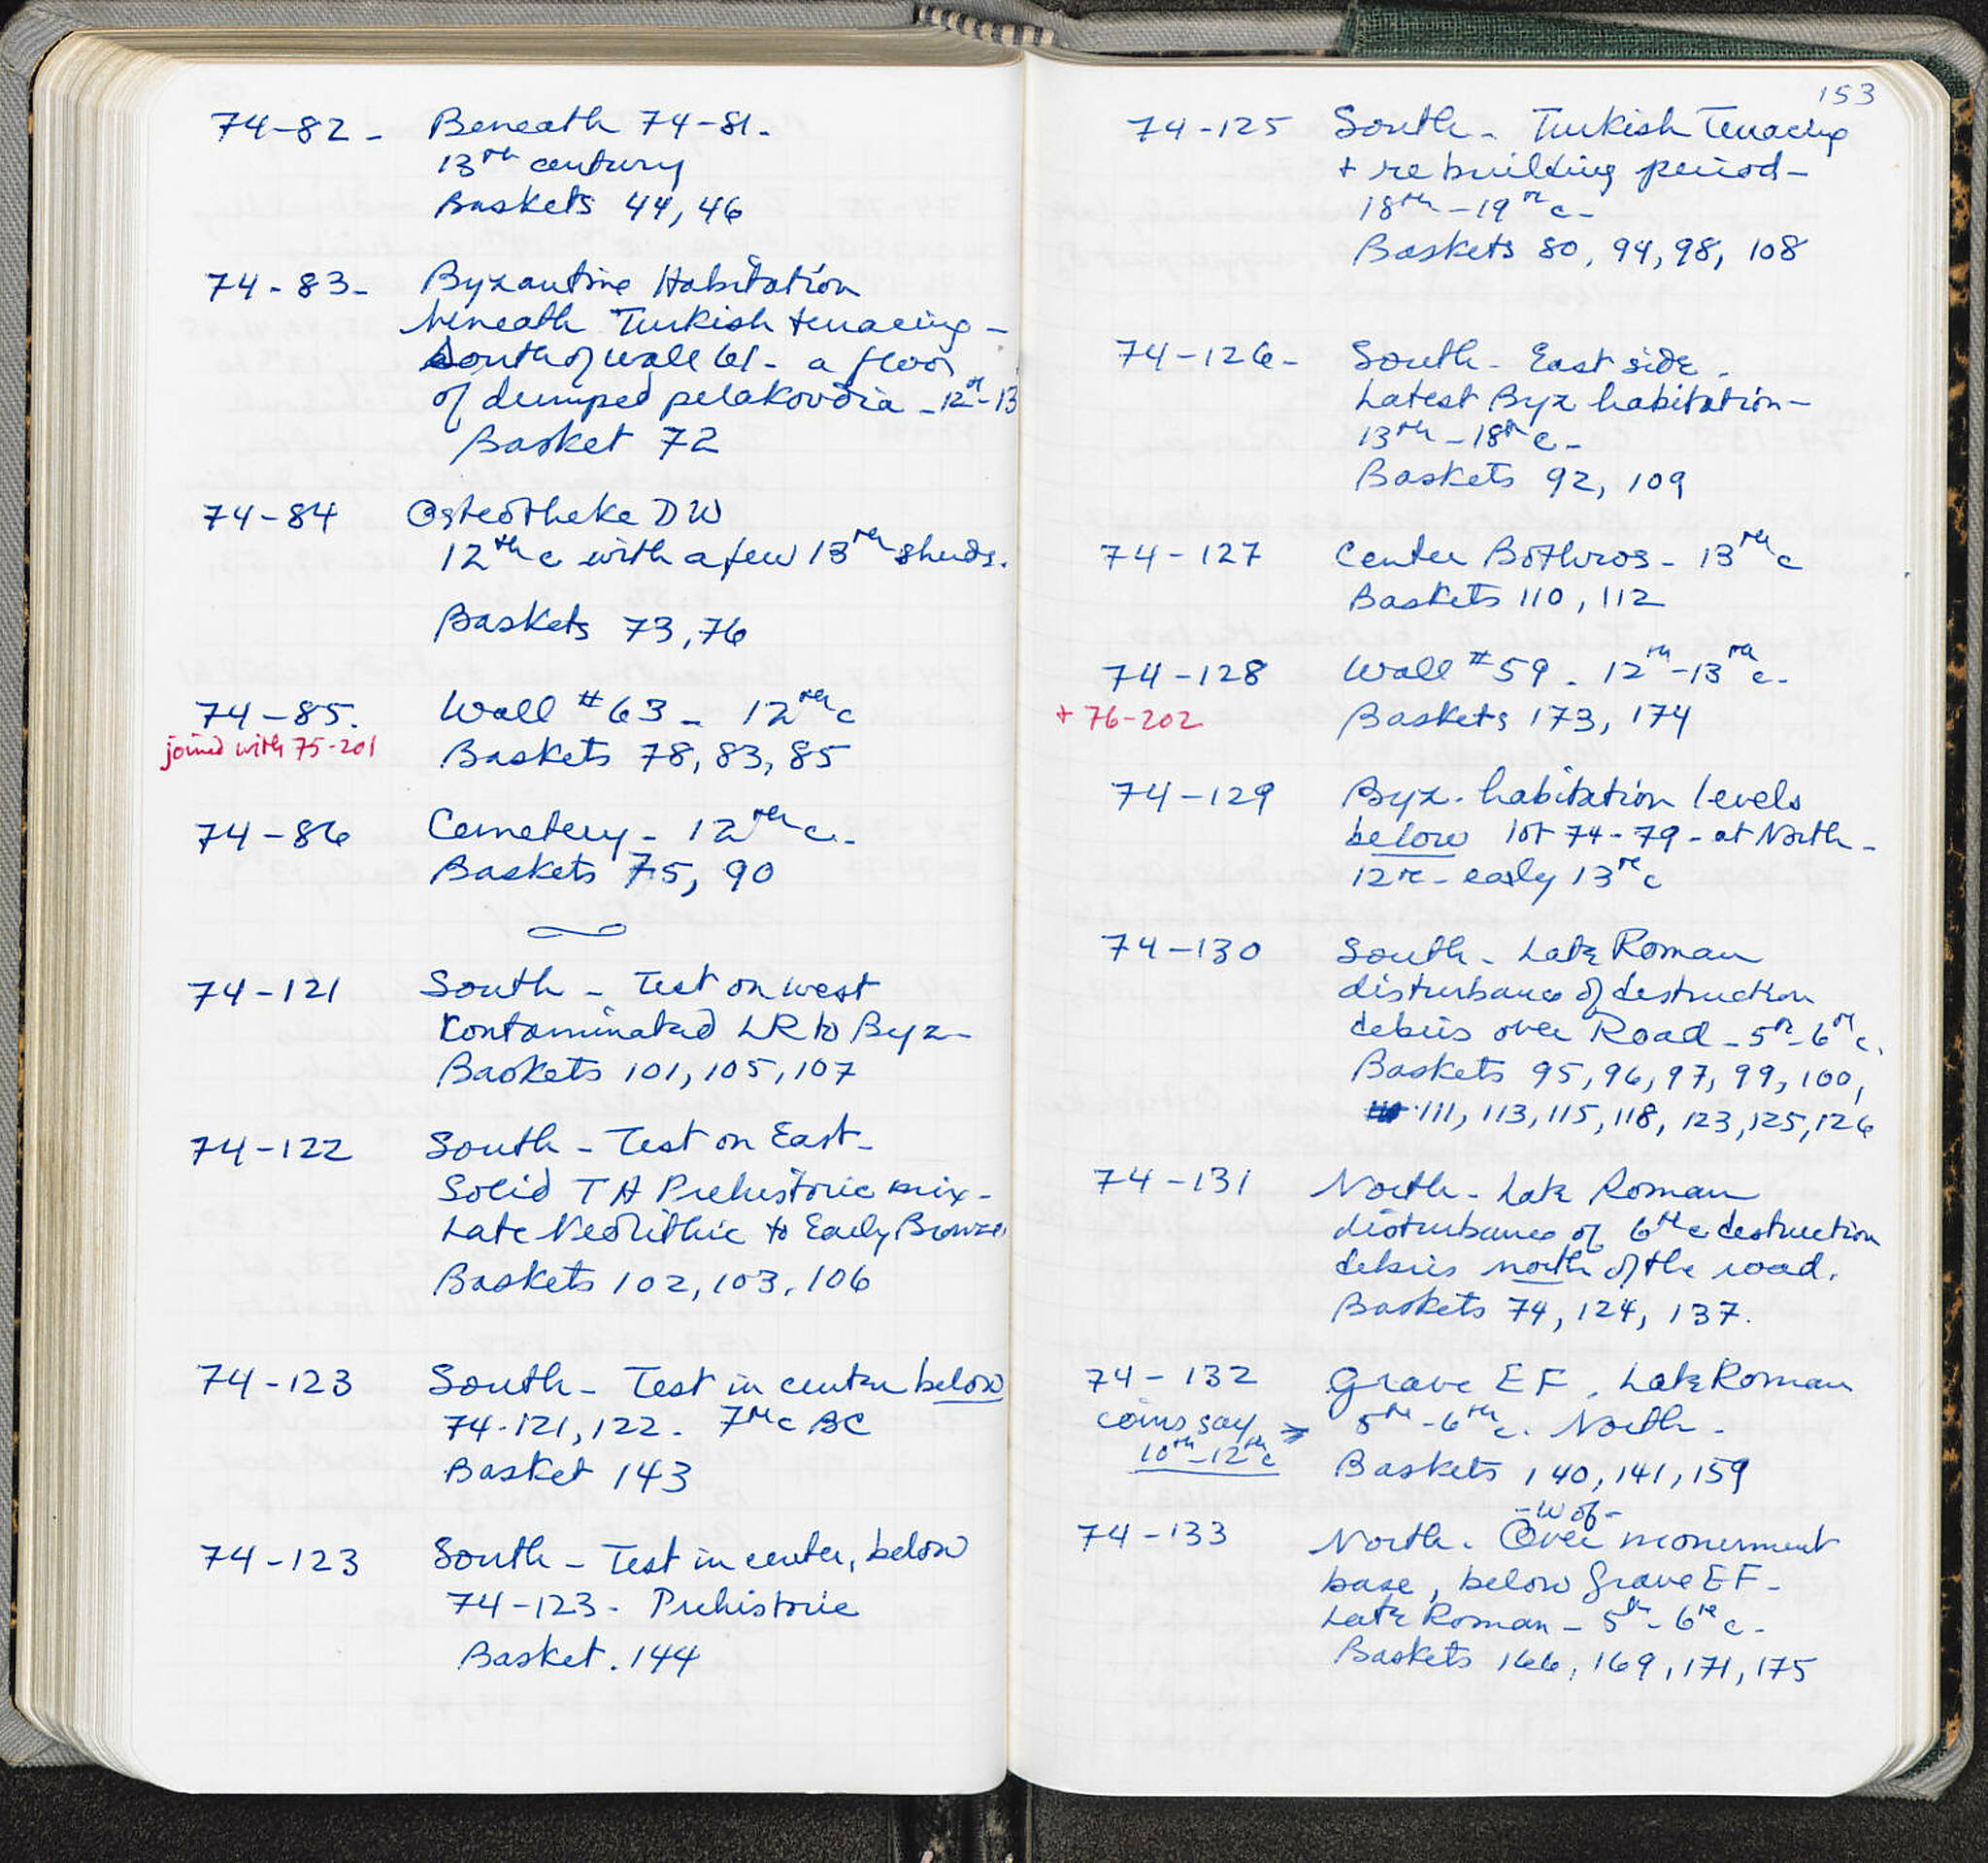 74-82 - Beneath 74-81.
13th century
Baskets 44, 46
74-83- Byzantine Habitation
beneath Turkish terracing -
South of wall 61 - a floor
of dumped pelakoudia - 12th-13
Basket 72
74-84 Osteotheke DW
12th c with a few 13th sherds.
Baskets 73, 76
74-85. Wall #63 - 12th c
joined with 75-201 Baskets 78, 83, 85
74-86 Cemetery - 12th c.
Baskets 75, 90
74-121 South - Test on west
Contaminated LR to Byz -
Baskets 101, 105, 107
74-122 South - Test on East -
Solid TA Prehistoric mix -
Late Neolithic to Early Bronze.
Baskets 102, 103, 106
74-123 South - Test in center below
74-121, 122. 7th c BC
Basket 143
74-123 South - Test in center, below
74-123 - Prehistoric
Basket. 144
153
74-125 South - Turkish Terracing
+ rebuilding period -
18th - 19th c -
Baskets 80, 94, 98, 108
74-126 - South - East side -
Latest Byz habitation -
13th - 18th c -
Baskets 92, 109
74-127 Center Bothros - 13th c
Baskets 110, 112
74-128 Wall #59 - 12th-13th c.
+ 76-202 Baskets 173, 174
74-129 Byz. habitation levels
below lot 74-79 - at North -
12th - early 13th c
74-130 South - Late Roman
disturbance of destruction
debris over Road - 5th-6th c.
Baskets 95, 96, 97, 99, 100,
111, 113, 115, 118, 123, 125, 126
74-131 North - Late Roman
disturbance of 6th c destruction
debris north of the road.
Baskets 74, 124, 137.
74-132 Grave EF. Late Roman
coins say > 5th-6th c. North -
10th-12th c Baskets 140, 141, 159
- W of -
74-133 North. Over monument
base, below Grave EF -
Late Roman - 5th-6th c -
Baskets 166, 169, 171, 175